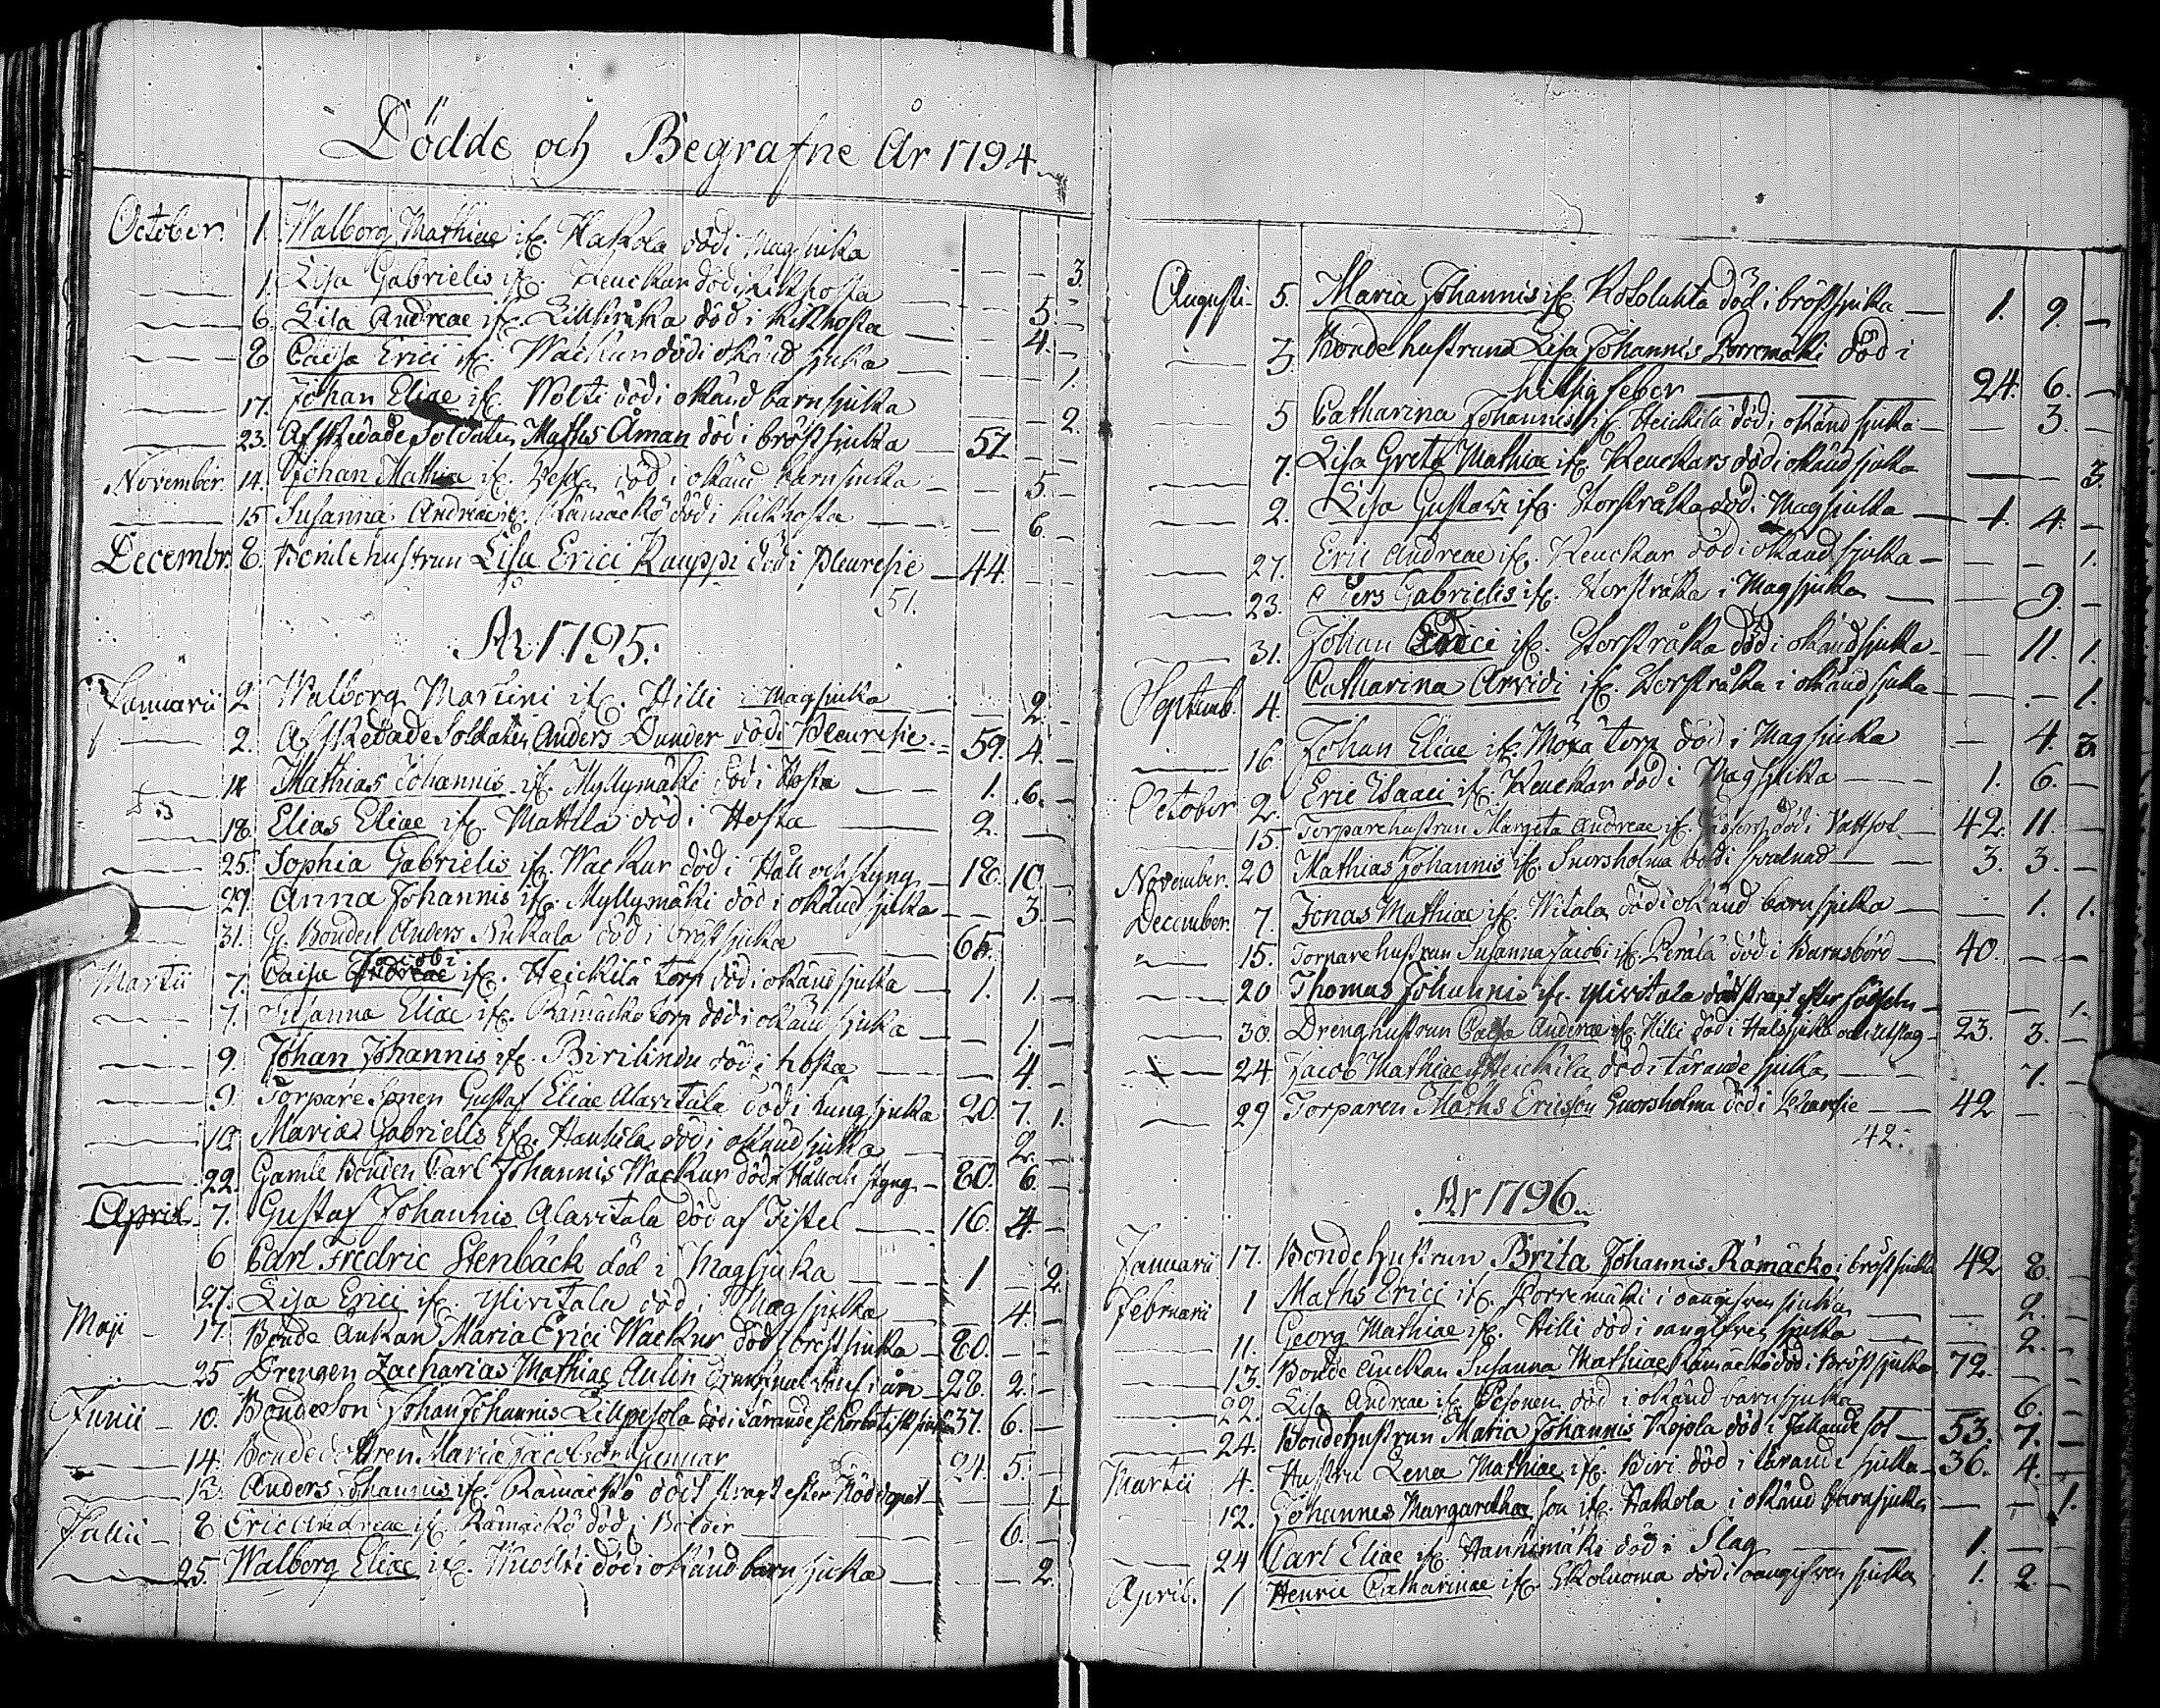 Dödde och Begrafne År 1794
October. 1. Walborg Mathiae ifr. Hakola död i Magsiuka — — 3.
— 1. Lisa Gabrielis ifr. Keuckar död i Kikhosta — — 5. —
— 6. Lisa Andreae ifr. Lillstråka död i Kikhosta — — 4. —
— 8 Caisa Erici ifr. Wackur död i okänd sjuka — — — 1.
— 17. Johan Eliae ifr. Wolti död i okänd barnsjuka — — 2.
— 23. Afskedade Soldaten Maths Åman död i bröstsjuka — 57. — —
November. 14. Johan Mathiae ifr. död i okänd barnsiuka — — 5. —
— 15 Susanna Andreae ifr. Rämäckö död i Kikhosta — — 6. —
Decembr. 8. Bondehustrun Lisa Erici Kauppi död i Pleuresie — 44. — —
51.
År 1795.
Januarii 2 Walborg Martini ifr. Hilli i Magsjuka — — 2. —
— 2. Afskedade Soldaten Anders Dunder död i Pleuresie. — 59. 4. —
— 14 Mathias Johannis ifr. Myllymäki död i Hosta — 1. 6. —
— 18. Elias Eliae ifr. Mattila död i Hosta — 2. — —
— 25. Sophia Gabrielis ifr. Wackur död i Håll och styng — 18. 10. —
— 29 Anna Johannis ifr. Myllymäki död i okänd sjuka — — 3. —
— 31. Gl. Bonden Anders död i bröstsjuka — 65. — —
Martii 7. Caisa Jacobi ifr. Heickilä torp död i okänd sjuka — 1. 1. —
— 7. Susanna Eliae ifr. Rämäckö torp död i okänd sjuka — — 1. —
— 9. Johan Johannis ifr. Birilindu död i hosta — — 4. —
— 9. Torpare Sonen Gustaf Eliae Alavitala död i Lungsjuka 20. 7. 1.
— 10. Maria Gabrielis ifr. Hanhila död i okänd sjuka — — 2. —
— 22. Gamle Bonden Carl Johannis Wackur död i Håll och styng — 80. 6. —
April 7. Gustaf Johannis Alavitala död af Fistel — 16. 4. —
6 Carl Fredric Stenbäck död i Magsjuka — 1. — 2
27. Lisa Erici ifr. Ylivitala död i Magsjuka — — 4. —
Maji — 17. Bonde Enkan Maria Erici Wackur död i bröstsjuka — 80. — —
— 25 Drengen Zacharias Mathiae Aulin i ån — 28. 2. —
Junii — 10. BondeSon Johan Johannis Lillpesola död i tärande 37. 6. —
— 14. Bonde Maria 24. 5. —
— 12. Anders Johannis ifr. Rämäckö död strax efter Nöddopet — — — 1.
Julii — 8 Eric Andreae ifr. Rämäckö död i — — 6. —
— 25. Walborg Eliae ifr. död i okänd barnsjuka — — — 2.
Augusti — 5. Maria Johannis ifr. Kokoluhta död i bröstsjuka. — 1. 9. —
— 3. Bonde hustrun Lisa Johannis Porremäki död i
hitsig feber — 24. 6. —
— 5 Catharina Johannis ifr. Heickilä död i okänd sjuka — — 3. —
— 7. Lisa Greta Mathiae ifr. Keuckars död i okänd sjuka — — 3.
— 2. Lisa Gustavi ifr. Storstråka död i Magsjuka — 1. 4. —
— 27. Eric Andreae ifr. Keuckar död i okänd sjuka — — — 1.
— 23. Anders Gabrielis ifr. Storstråka i Magsjuka — — 9. —
— 31. Johan Erici ifr. Storstråka död i okänd sjuka — — 11. 1.
Septemb. 4. Catharina Arvidi ifr. Storstråka i okänd sjuka — — — 1.
— 16. Johan Eliae ifr. torp död i Magsjuka — 4. 3.
October 2. Eric Esaaci ifr. Keuckar död i Magsjuka — 1. 6. —
— 15. Torparehustrun Margeta Andreae ifr. död i Vattsot — 42. 11. —
November. 20 Mathias Johannis ifr. Snorsholma död i svalnad — 3. 3. —
December. 7. Jonas Mathiae ifr. Witala död i okänd barnsjuka — — 1. 1.
— 15. Torparehustrun Susanna Jacobi ifr. Perälä död i Barnsbörd — 40. — —
— 20 Thomas Johannis ifr. Ylivitala död straxt efter födseln — — — 1.
— 30. Drenghustrun Caisa Andreae ifr. Hilli död i Halssjuka och utslag — 23. 3. —
— 24 Jacob Mathiae Heickilä död i tärande sjuka — 7. —
— 29 Torparen Maths Ericson Snorsholma död i Pleuresie — 42 — —
42.
År 1796.
Januarii 17. Bondehustrun Brita Johannis Rämäckö i bröstsiuka 42 8. —
Februarii 1 Maths Erici ifr. Porremäki i oangifven sjuka — — 2. —
— 11. Georg Mathiae ifr. Hilli död i oangifven sjuka — — 2. —
— 13. Bonde Enckan Susanna Mathiae Rämäckö död i Bröstsjuka 72. — —
— 22. Lisa Andreae ifr. Pesonen död i okänd barnsjuka — — 6. —
— 24. Bondehustrun Maria Johannis Kojola död i fallande sot — 53. 7. —
Martii 4. Hustru Lena Mathiae ifr. Biri död i tärande sjuka — 36. 4. —
12. Johannes Margarethae son ifr. Hakola i okänd barnsjuka — — 1.
— 24 Carl Eliae ifr. Hanhimäki död i Slag — 1. — —
April. 1 Henric Catharinae ifr. Ekoluoma död i oangifven sjuka 1. 2. —